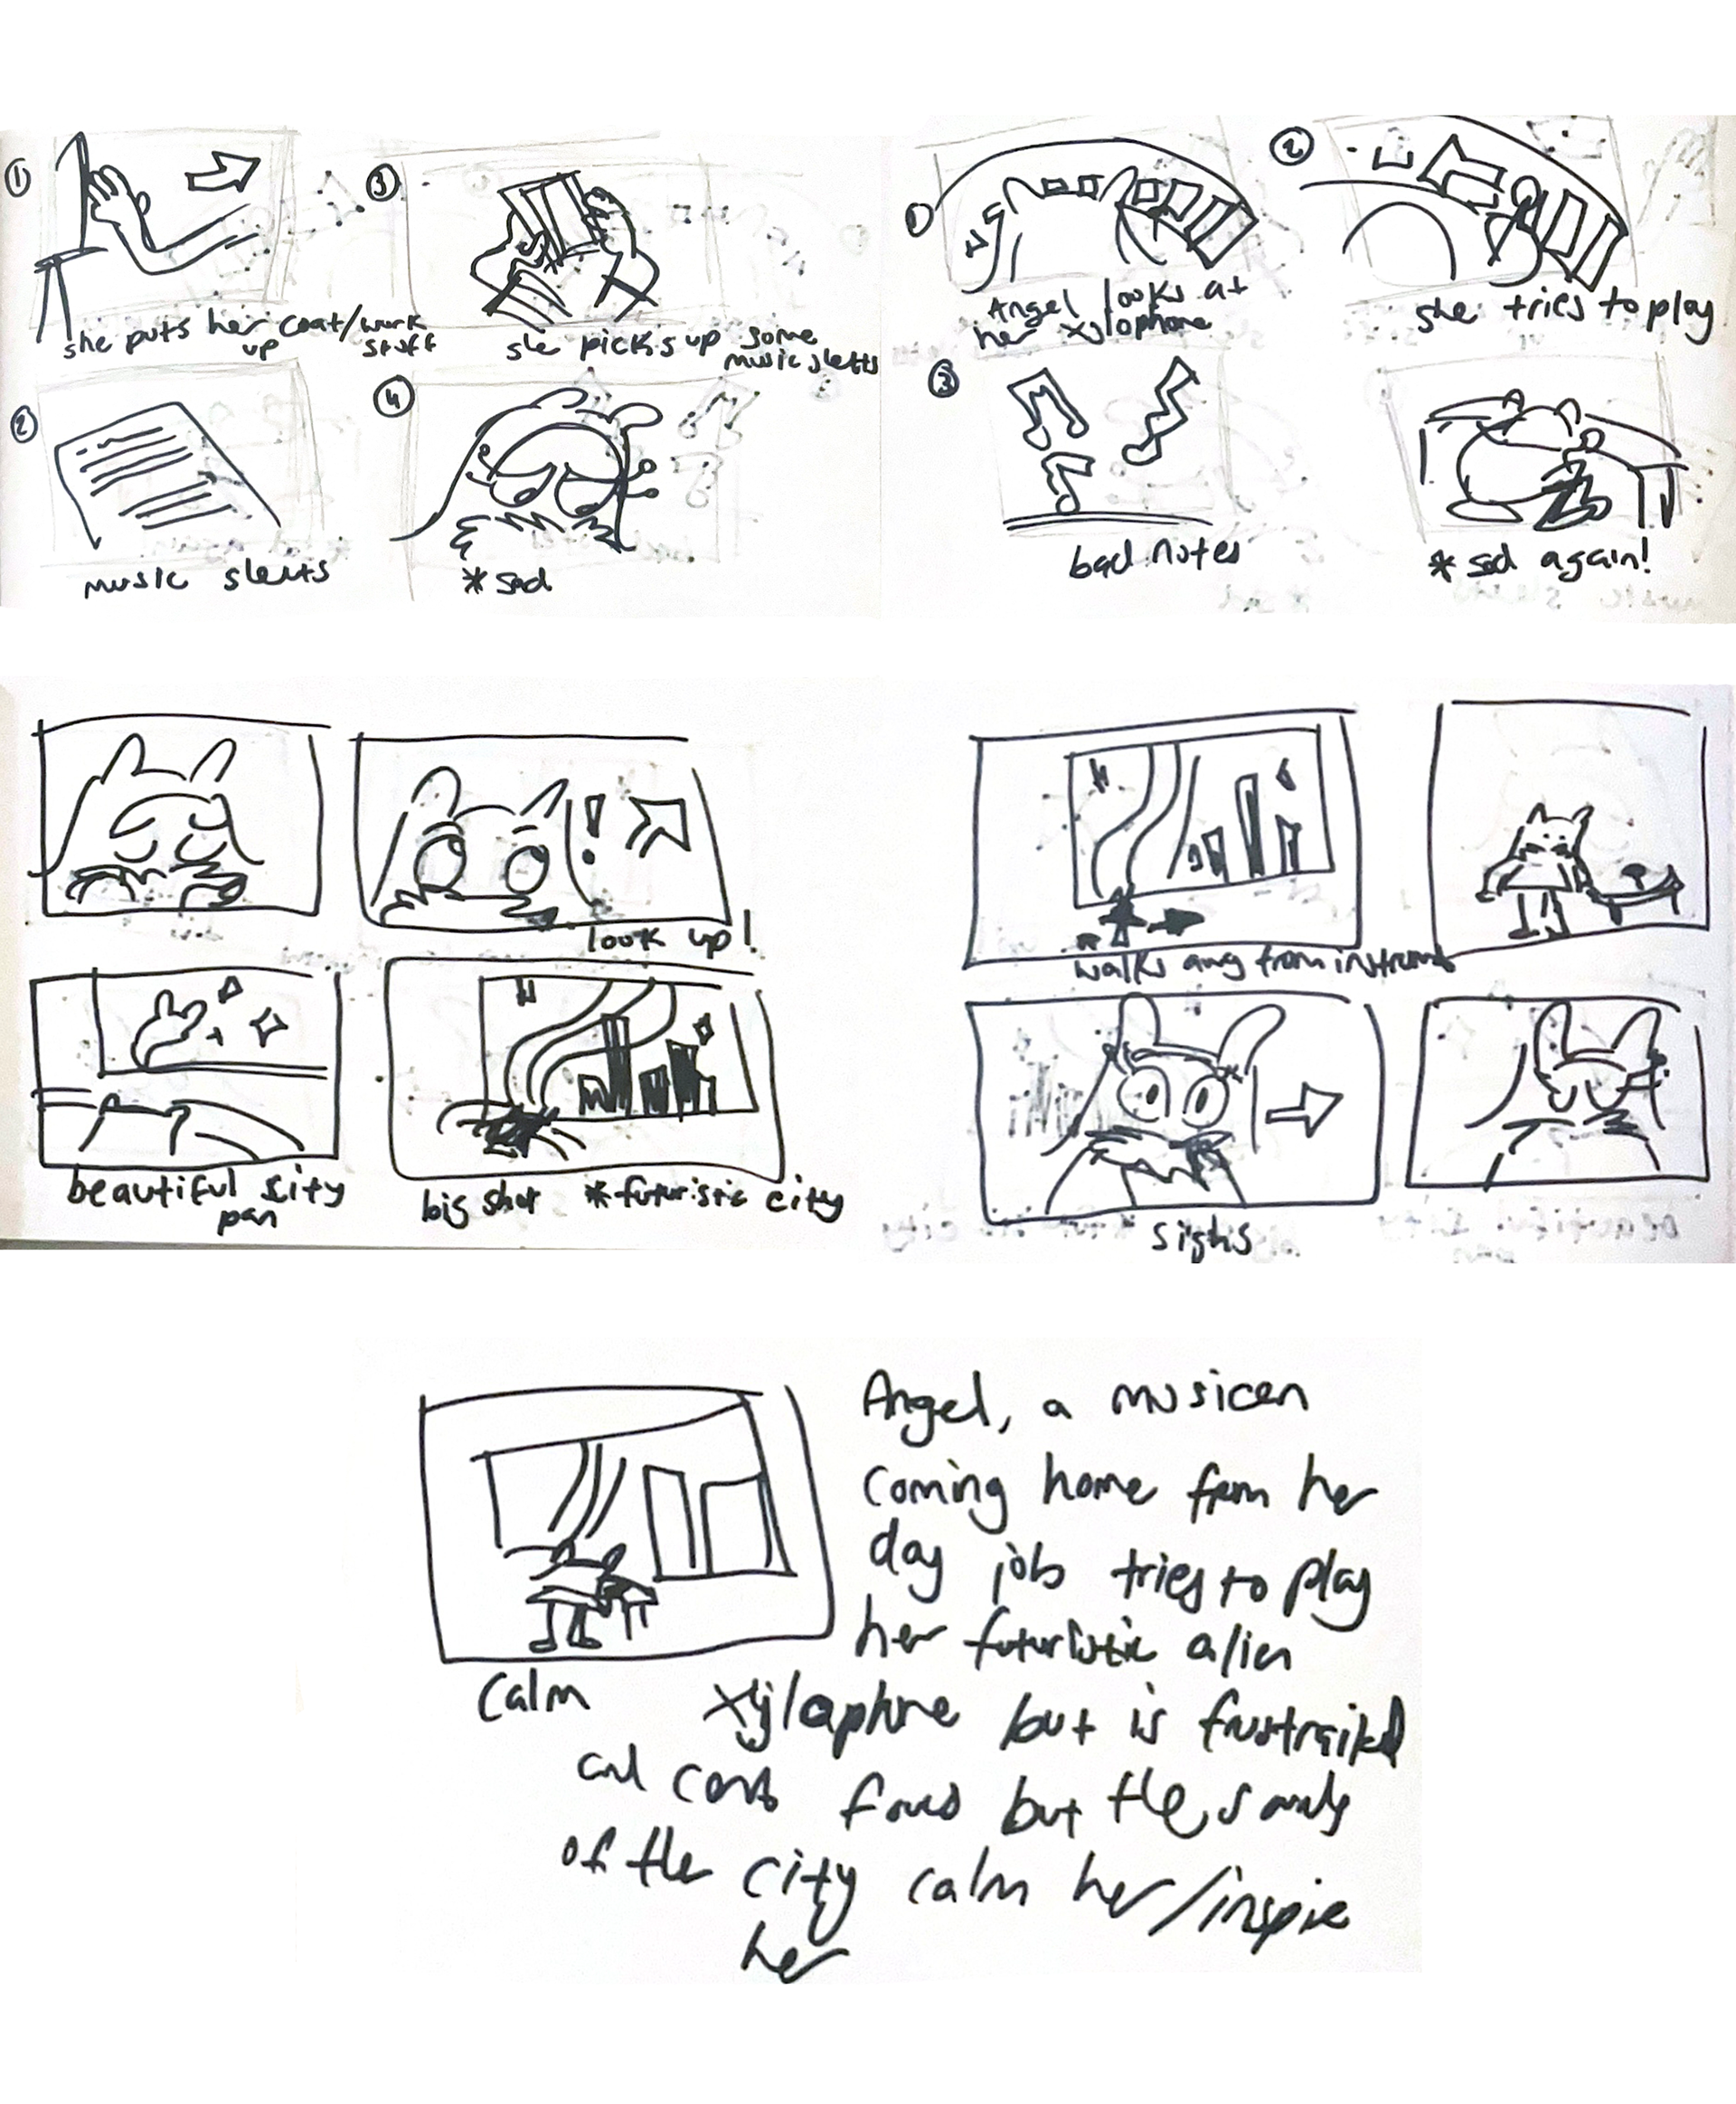 ①
she puts her coat/work
up stuff
③
she picks up some
music sletts
②
music sleets
④
*sad
①
Angel looks at
her xylophone
②
she tries to play
③
bad notes
*sad again!
!
look up!
beautiful city
pan
big shot *futuristic city
walks
from instrument
sighs
calm
Angel, a musicen
coming home from her
day job tries to play
her futuristic alien
xylophne but is frustraitd
and
but the
of the city calm her/inspie
her